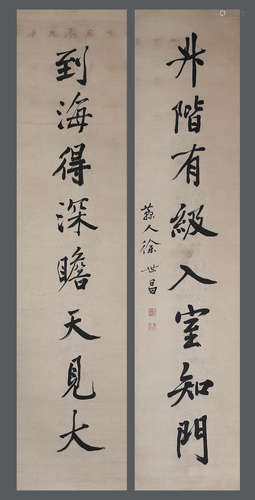 升階有級入室知門
到海得深瞻天見大
蘇人徐世昌